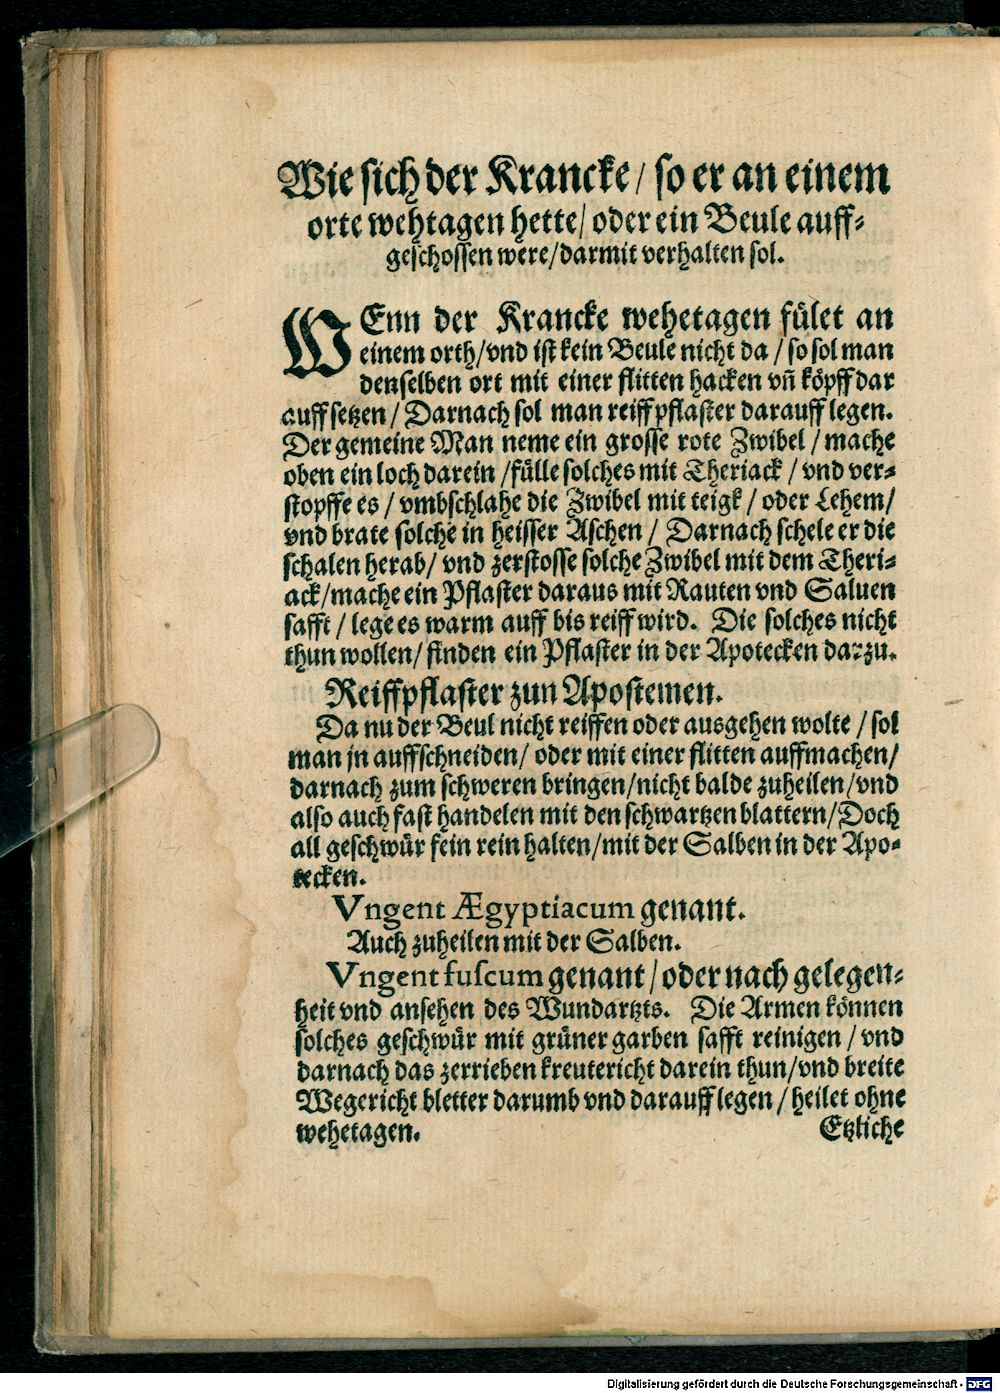 Wie sich der Krancke / so er an einem
orte wehtagen hette / oder ein Beule auff⸗
geschossen were / darmit verhalten sol.
WEnn der Krancke wehetagen fület an
einem orth / vnd ist kein Beule nicht da / so sol man
denselben ort mit einer flitten hacken vñ köpff dar
auff setzen / Darnach sol man reiff pflaster darauff legen.
Der gemeine Man neme ein grosse rote Zwibel / mache
oben ein loch darein / fülle solches mit Theriack / vnd ver⸗
stopffe es / vmbschlahe die Zwibel mit teigk / oder Lehem /
vnd brate solche in heisser Aschen / Darnach schele er die
schalen herab / vnd zerstosse solche Zwibel mit dem Theri⸗
ack / mache ein Pflaster daraus mit Rauten vnd Saluen
safft / lege es warm auff bis reiff wird. Die solches nicht
thun wollen / finden ein Pflaster in der Apotecken darzu.
Reiffpflaster zun Apostemen.
Da nu der Beul nicht reiffen oder ausgehen wolte / sol
man jn auffschneiden / oder mit einer flitten auffmachen /
darnach zum schweren bringen / nicht balde zuheilen / vnd
also auch fast handelen mit den schwartzen blattern / Doch
all geschwür fein rein halten / mit der Salben in der Apo⸗
tecken.
Vngent Ægyptiacum genant.
Auch zuheilen mit der Salben.
Vngent fuscum genant / oder nach gelegen⸗
heit vnd ansehen des Wundartzts. Die Armen können
solches geschwür mit grüner garben safft reinigen / vnd
darnach das zerrieben kreutericht darein thun / vnd breite
Wegericht bletter darumb vnd darauff legen / heilet ohne
wehetagen. Etzliche
Digitalisierung gefördert durch die Deutsche Forschungsgemeinschaft - DFG